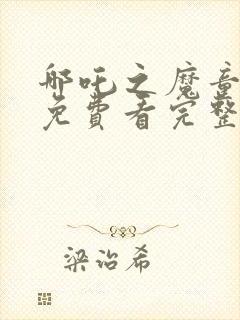 哪吒之魔童
免費看完整
梁治希